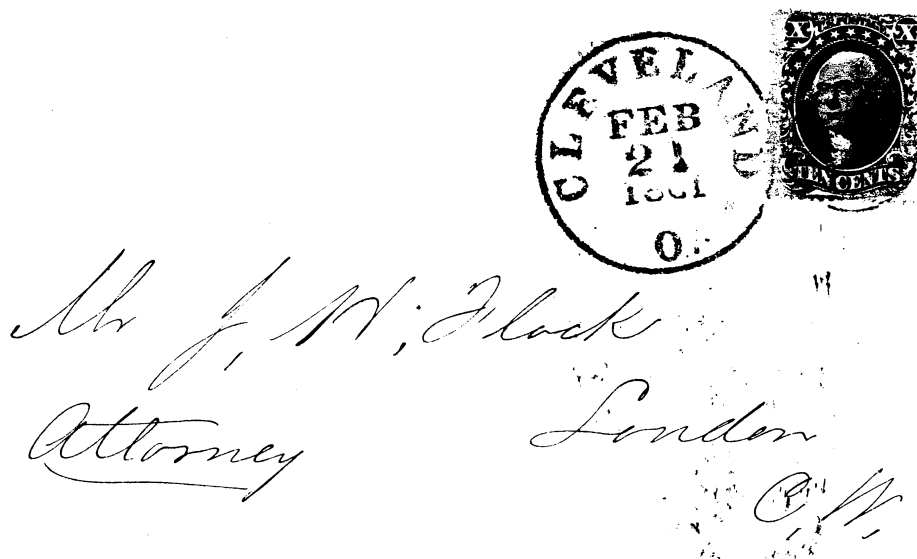 CLEVELAND
FEB
21
1861
O.
X U.S. POSTAGE X
TEN CENTS
Mr J, W; Flock
Attorney London
C, W,